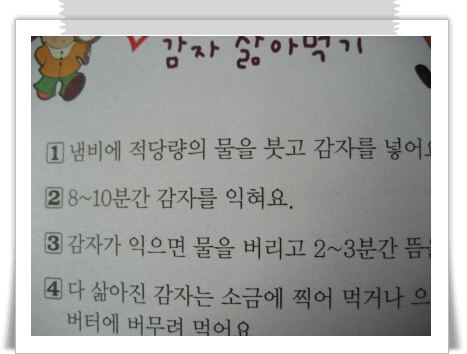 감자 삶아먹기
1 냄비에 적당량의 물을 붓고 감자를 넣어
2 8~10분간 감자를 익혀요.
3 감자가 익으면 물을 버리고 2~3분간 뜸을
4 다 삶아진 감자는 소금에 찍어 먹거나 으
버터에 버무려 먹어요